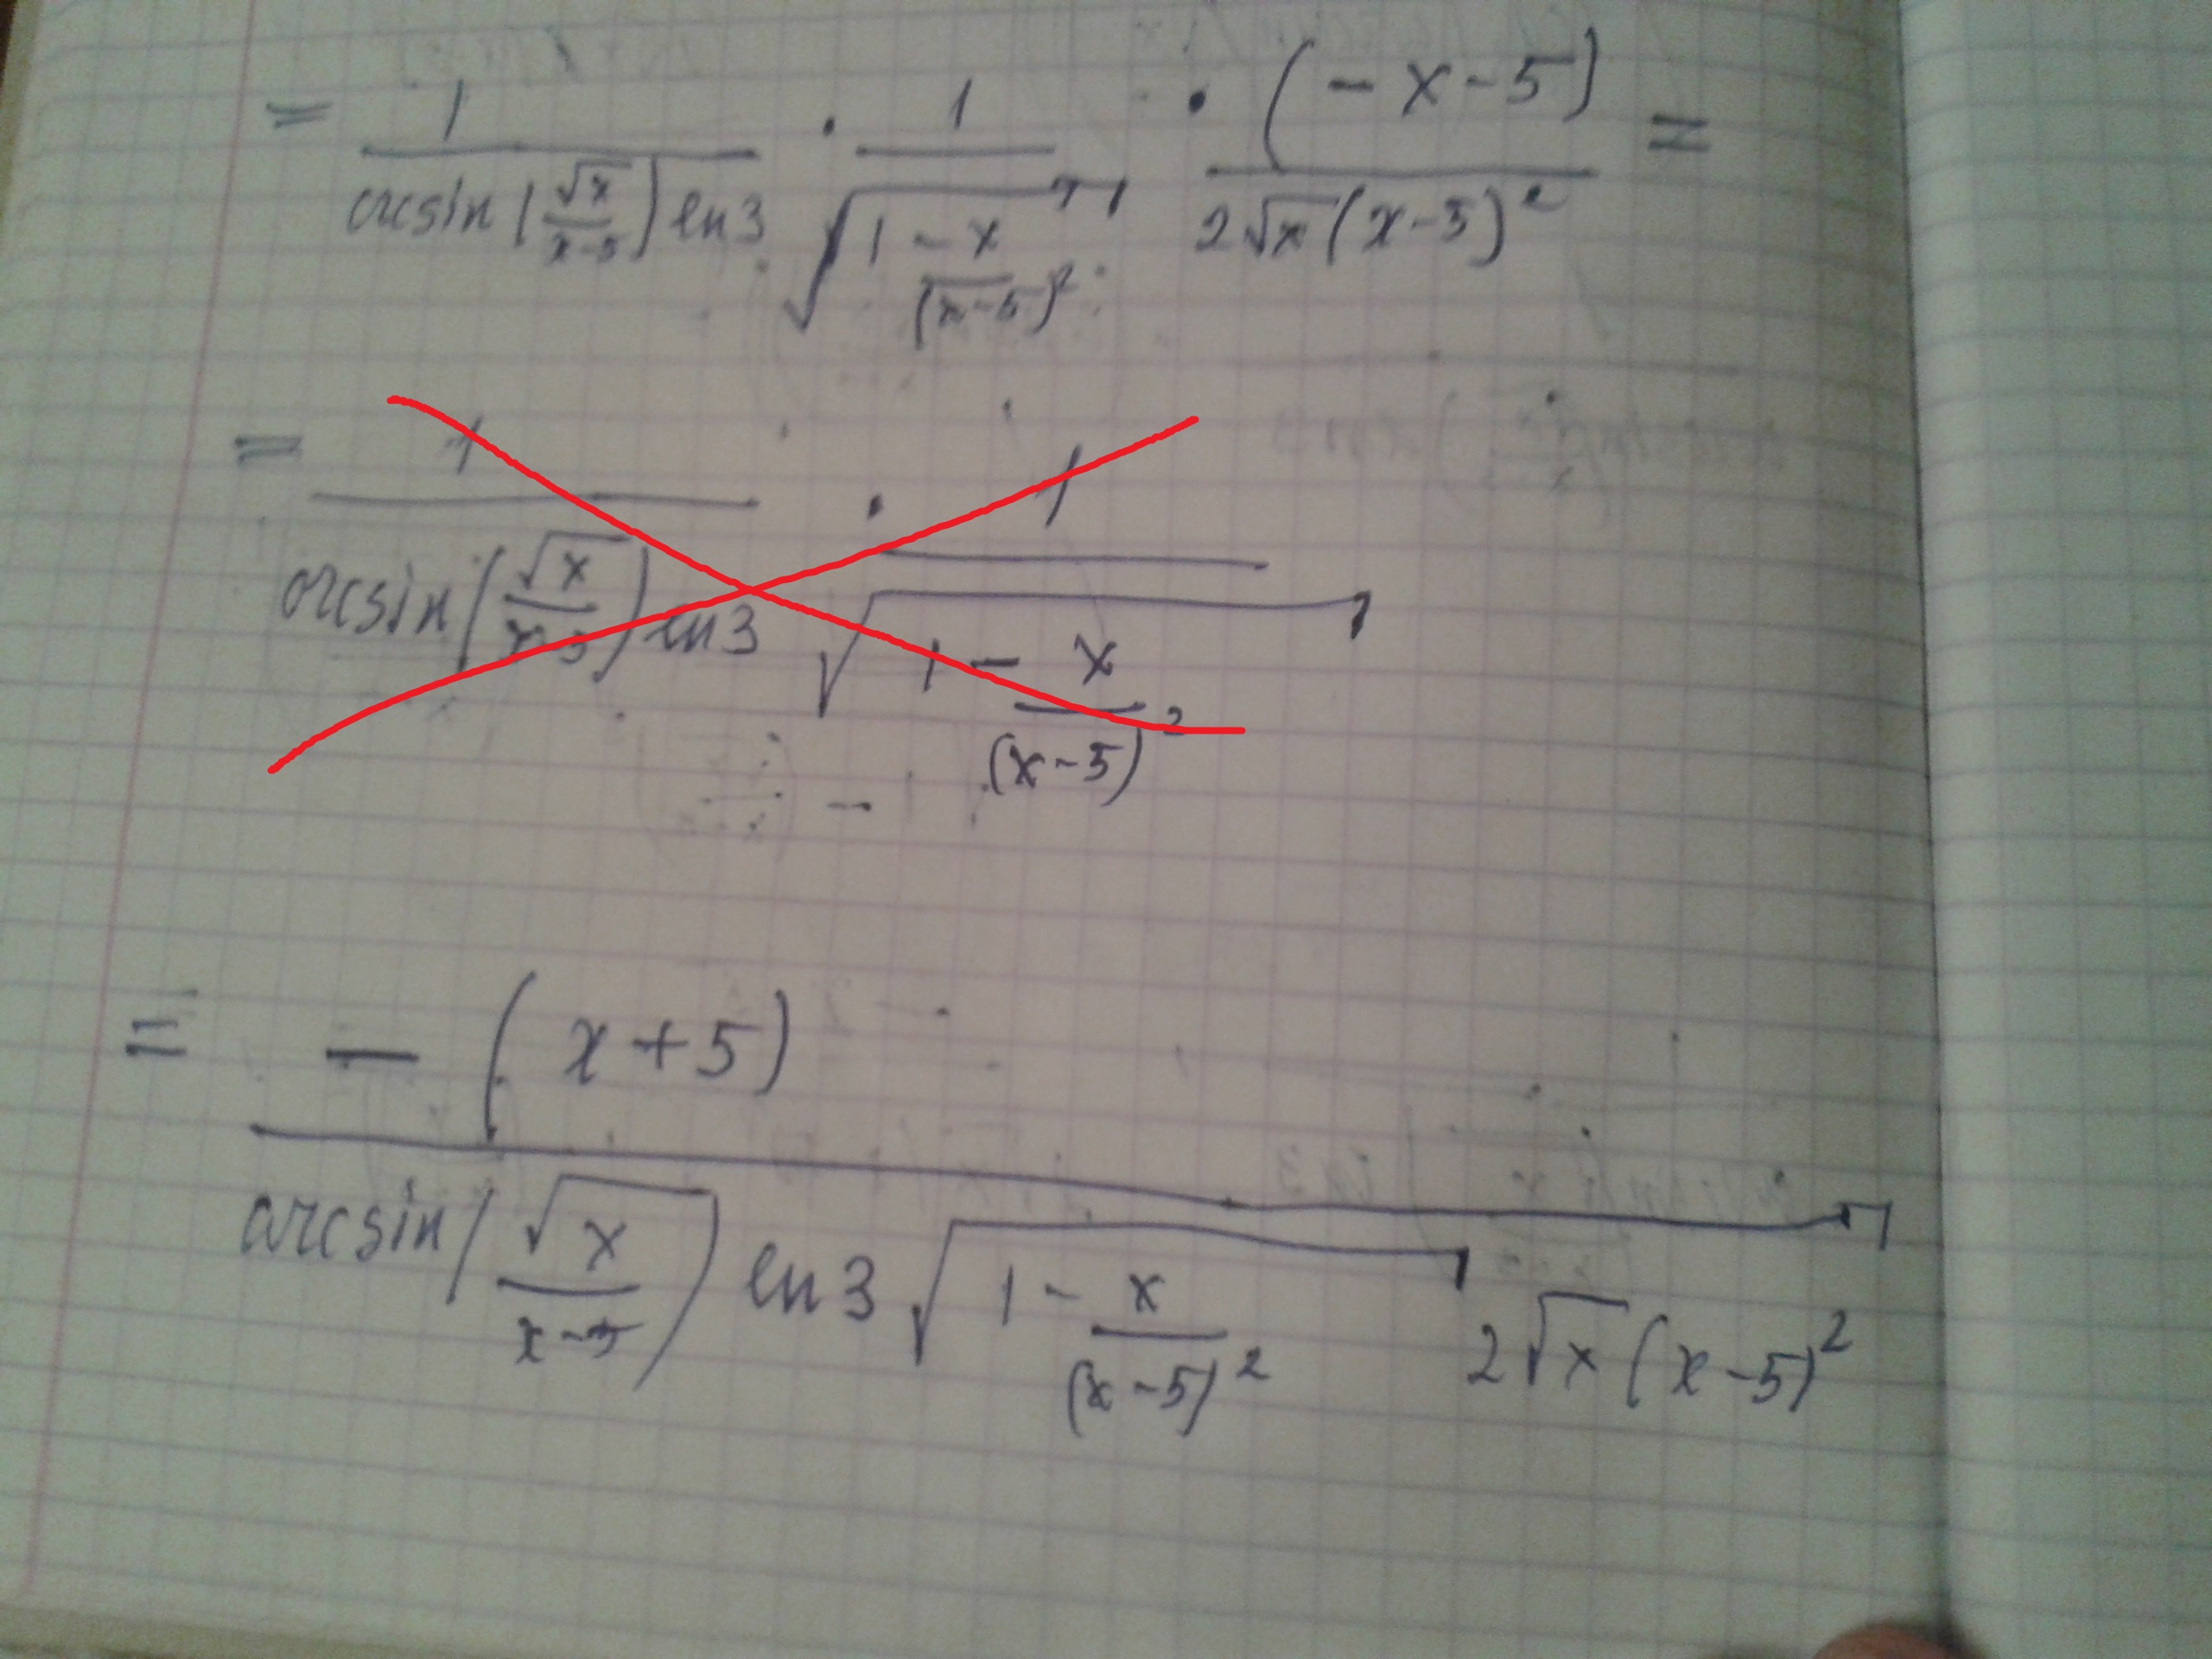 = 1/(arcsin(√x/(x-5)) ln3) · 1/√(1 - x/(x-5)²) · (-x-5)/(2√x(x-5)²) =
= 1/(arcsin(√x/(x-5)) ln3) · 1/√(1 - x/(x-5)²)
= -(x+5)/(arcsin(√x/(x-5)) ln3 √(1 - x/(x-5)²) 2√x(x-5)²)